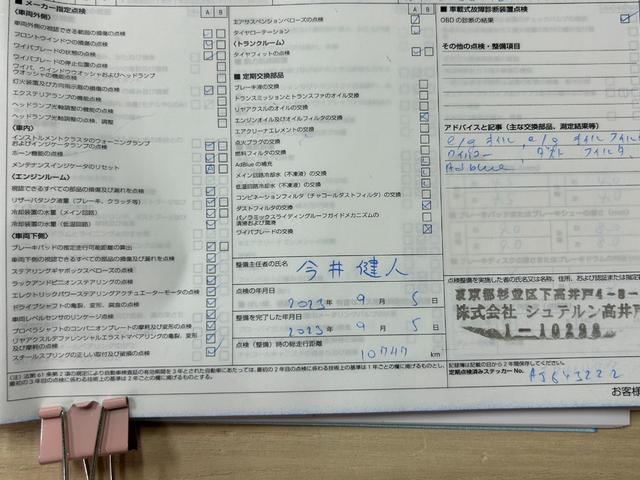 ■ メーカー指定点検
A B
(車両外側)
車両外側の視認できる範囲の損傷の点検
フロントウインドウの損傷の点検
ワイパブレードの状態の点検
ワイパブレード停止位置の点検
ワイパ、ウインドウウォッシャおよびヘッドランプ
ウオッシャの機能点検
灯火装置及び方向指示器の損傷の点検
エクステリアランプの機能点検
ヘッドランプ光軸調整の機能の点検
ヘッドランプ光軸調整の点検、調整
(車内)
インストルメントクラスタのウォーニングランプ
およびインジケータランプの点検
ホーン機能の点検
メンテナンスインジケータのリセット
(エンジンルーム)
視認できるすべての部品の損傷及び漏れを点検
リザーバタンク液量(ブレーキ、クラッチ等)
冷却装置の水量(メイン回路)
冷却装置の水量(低温回路)
(車両下側)
ブレーキパッドの指定走行可能距離の算出
車両下側の視認できるすべての部品の損傷及び漏れを点検
ステアリングギヤボックスベローズの点検
ラックアンドピニオンステアリングの点検
エレクトリックパワーステアリングアクチュエータモータの点検
ドライブシャフトの亀裂、変形、腐食の点検
車両レベルセンサのリンケージ点検
プロペラシャフトのコンパニオンプレートの摩耗及び変形の点検
リヤアクスルデファレンシャルエラストマベアリングの亀裂、変形
及び摩耗の点検
スチールスプリングの正しい取付及び破損の点検
A B
エアサスペンションベローズの点検
タイヤローテーション
(トランクルーム)
タイヤフィットの点検
■ 定期交換部品
ブレーキ液の交換
トランスミッションとトランスファのオイル交換
リヤアクスルのオイルの交換
エンジンオイル及びオイルフィルタの交換
エアクリーナエレメントの交換
点火プラグの交換
燃料フィルタの交換
AdBlueの補充
メイン回路冷却水(不凍液)の交換
低温回路冷却水(不凍液)の交換
コンビネーションフィルタ(チャコールダストフィルタ)の交換
ダストフィルタの交換
パノラミックスライディングルーフガイドメカニズムの
清掃および潤滑
ワイパブレードの交換
整備主任者の氏名
今井 健人
点検の年月日
2023年 9月 5日
整備を完了した年月日
2023年 9月 5日
点検(整備)時の総走行距離
10747 km
■ 車載式故障診断装置点検
OBDの診断の結果
その他の点検・整備項目
アドバイスと記事(主な交換部品、測定結果等)
e/g オイル e/g オイル フィルタ
ワイパー、ダスト フィルタ
Ad blue
点検整備を実施した者の氏名又は名称、住所、および認証または指定
東京都杉並区下高井戸4-8-
株式会社 シュテルン高井戸
1-10298
記録簿は記載の日から2年間保存してください。
定期点検済みステッカーNo. AJ643222
(注)法第61条第2項の規定により自動車検査証の有効期間を3年とされた自動車にあっては、最初の2年目の点検に係わる技術上の基準は1年ごとの欄に掲げるものとし、
最初の3年目の点検に係わる技術上の基準は2年ごとの欄に掲げるものとする。
お客様